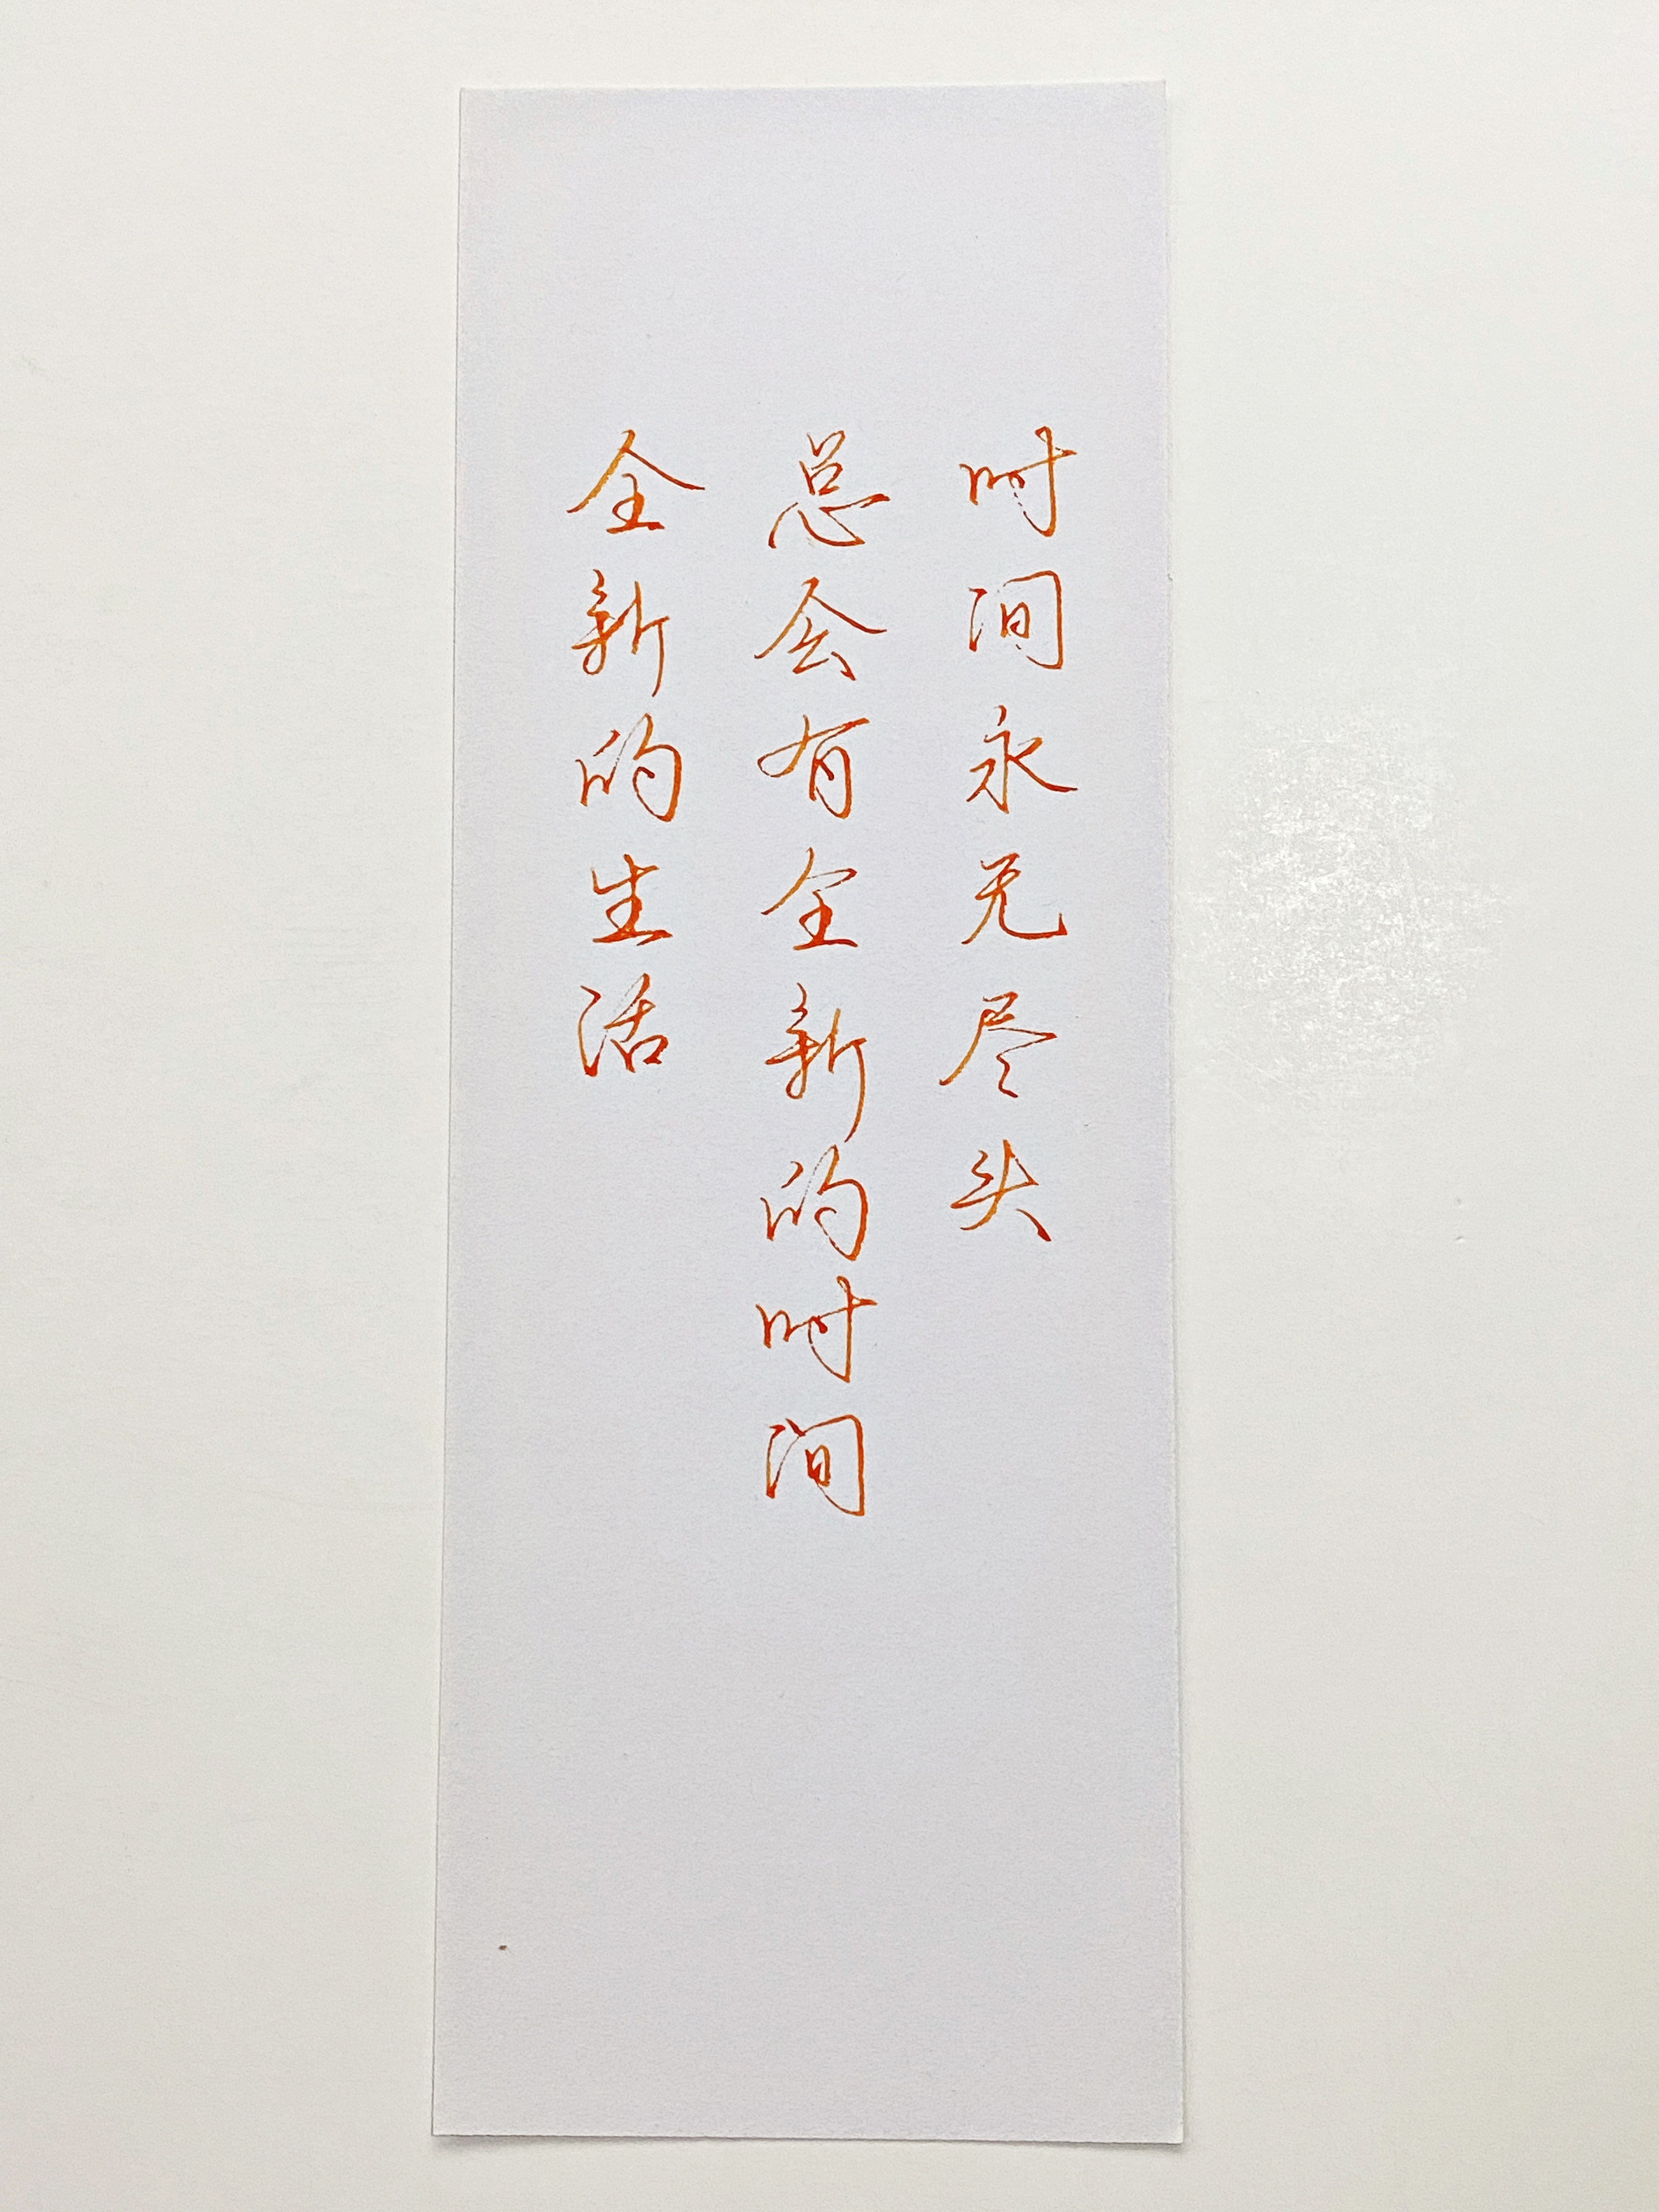 时间永无尽头
总会有全新的时间
全新的生活